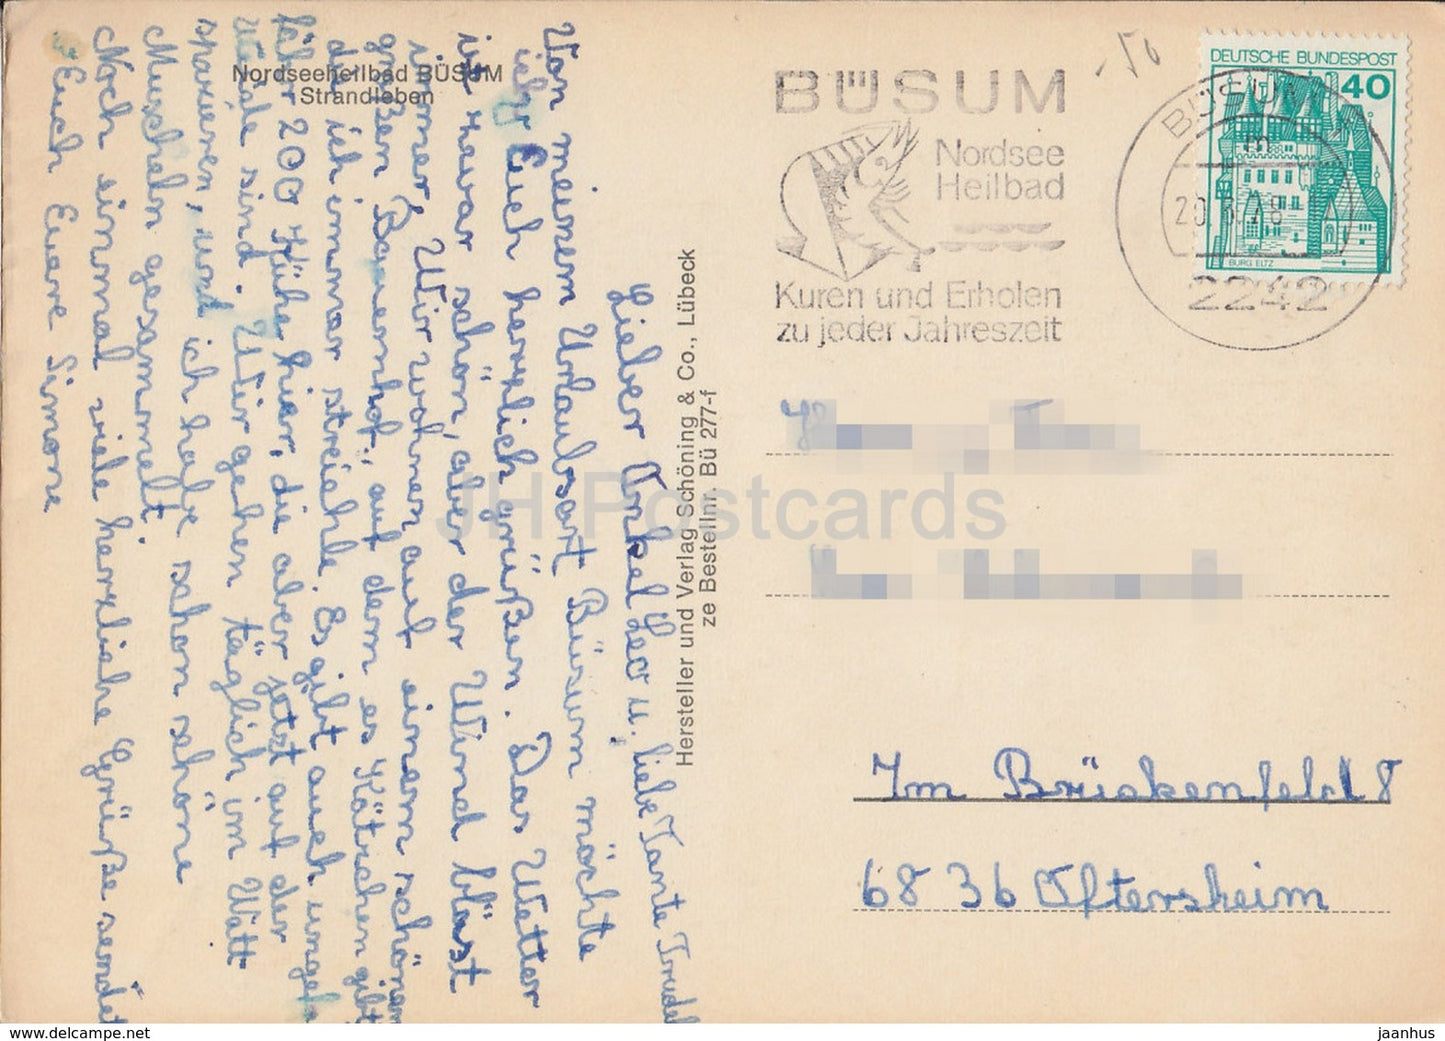 Nordseeheilbad BÜSUM
Strandleben
Lieber Onkel Leo u. liebe Tante Trudel
Von meinem Urlaubsort Büsum möchte
ich Euch herzlich grüßen. Das Wetter
ist zwar schön, aber der Wind bläst
immer. Wir wohnen auf einem schönen
großen Bauernhof, auf dem es Kätzchen gibt
die ich immer streichle. Es gibt auch ungefä
fähr 200 Kühe hier, die aber jetzt auf der
Weide sind. Wir gehen täglich im Watt
spazieren, und ich habe schon schöne
Muscheln gesammelt.
Noch einmal viele herzliche Grüße sendet
Euch Eure Simone
Hersteller und Verlag Schöning & Co., Lübeck
ze Bestellnr. Bü 277-f
-50
BÜSUM
Nordsee
Heilbad
Kuren und Erholen
zu jeder Jahreszeit
BÜSUM 1
m
2242
DEUTSCHE BUNDESPOST
40
BURG ELTZ
Im Brückenfeld 8
6836 Oftersheim
JH Postcards
www.delcampe.net
jaanhus